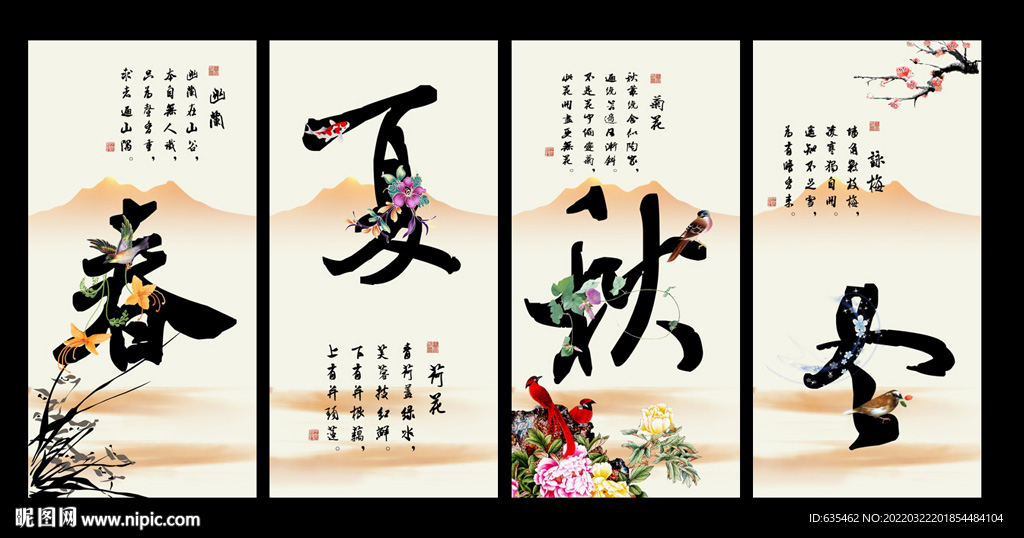 幽蘭
幽蘭在山谷，
本自無人識，
只為馨香重，
求者遍山隅。
春
夏
荷花
青荷蓋綠水，
芙蓉披紅鮮。
下有并根藕，
上有并頭蓮。
菊花
秋叢繞舍似陶家，
遍繞籬邊日漸斜。
不是花中偏愛菊，
此花開盡更無花。
秋
詠梅
墻角數枝梅，
凌寒獨自開。
遥知不是雪，
為有暗香來。
冬
昵图网 www.nipic.com
ID:635462 NO:20220322201854484104